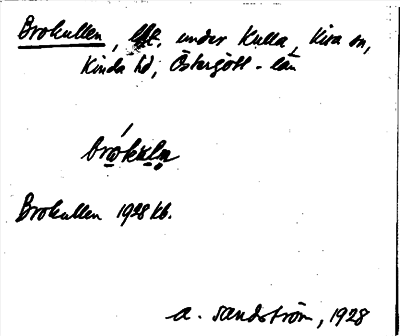 Brokullen, lht. under Kulla, Kisa sn,
Kinda hd, Östergötl. län
brókuln
Brokullen 1928 kb.
A. Sandström, 1928